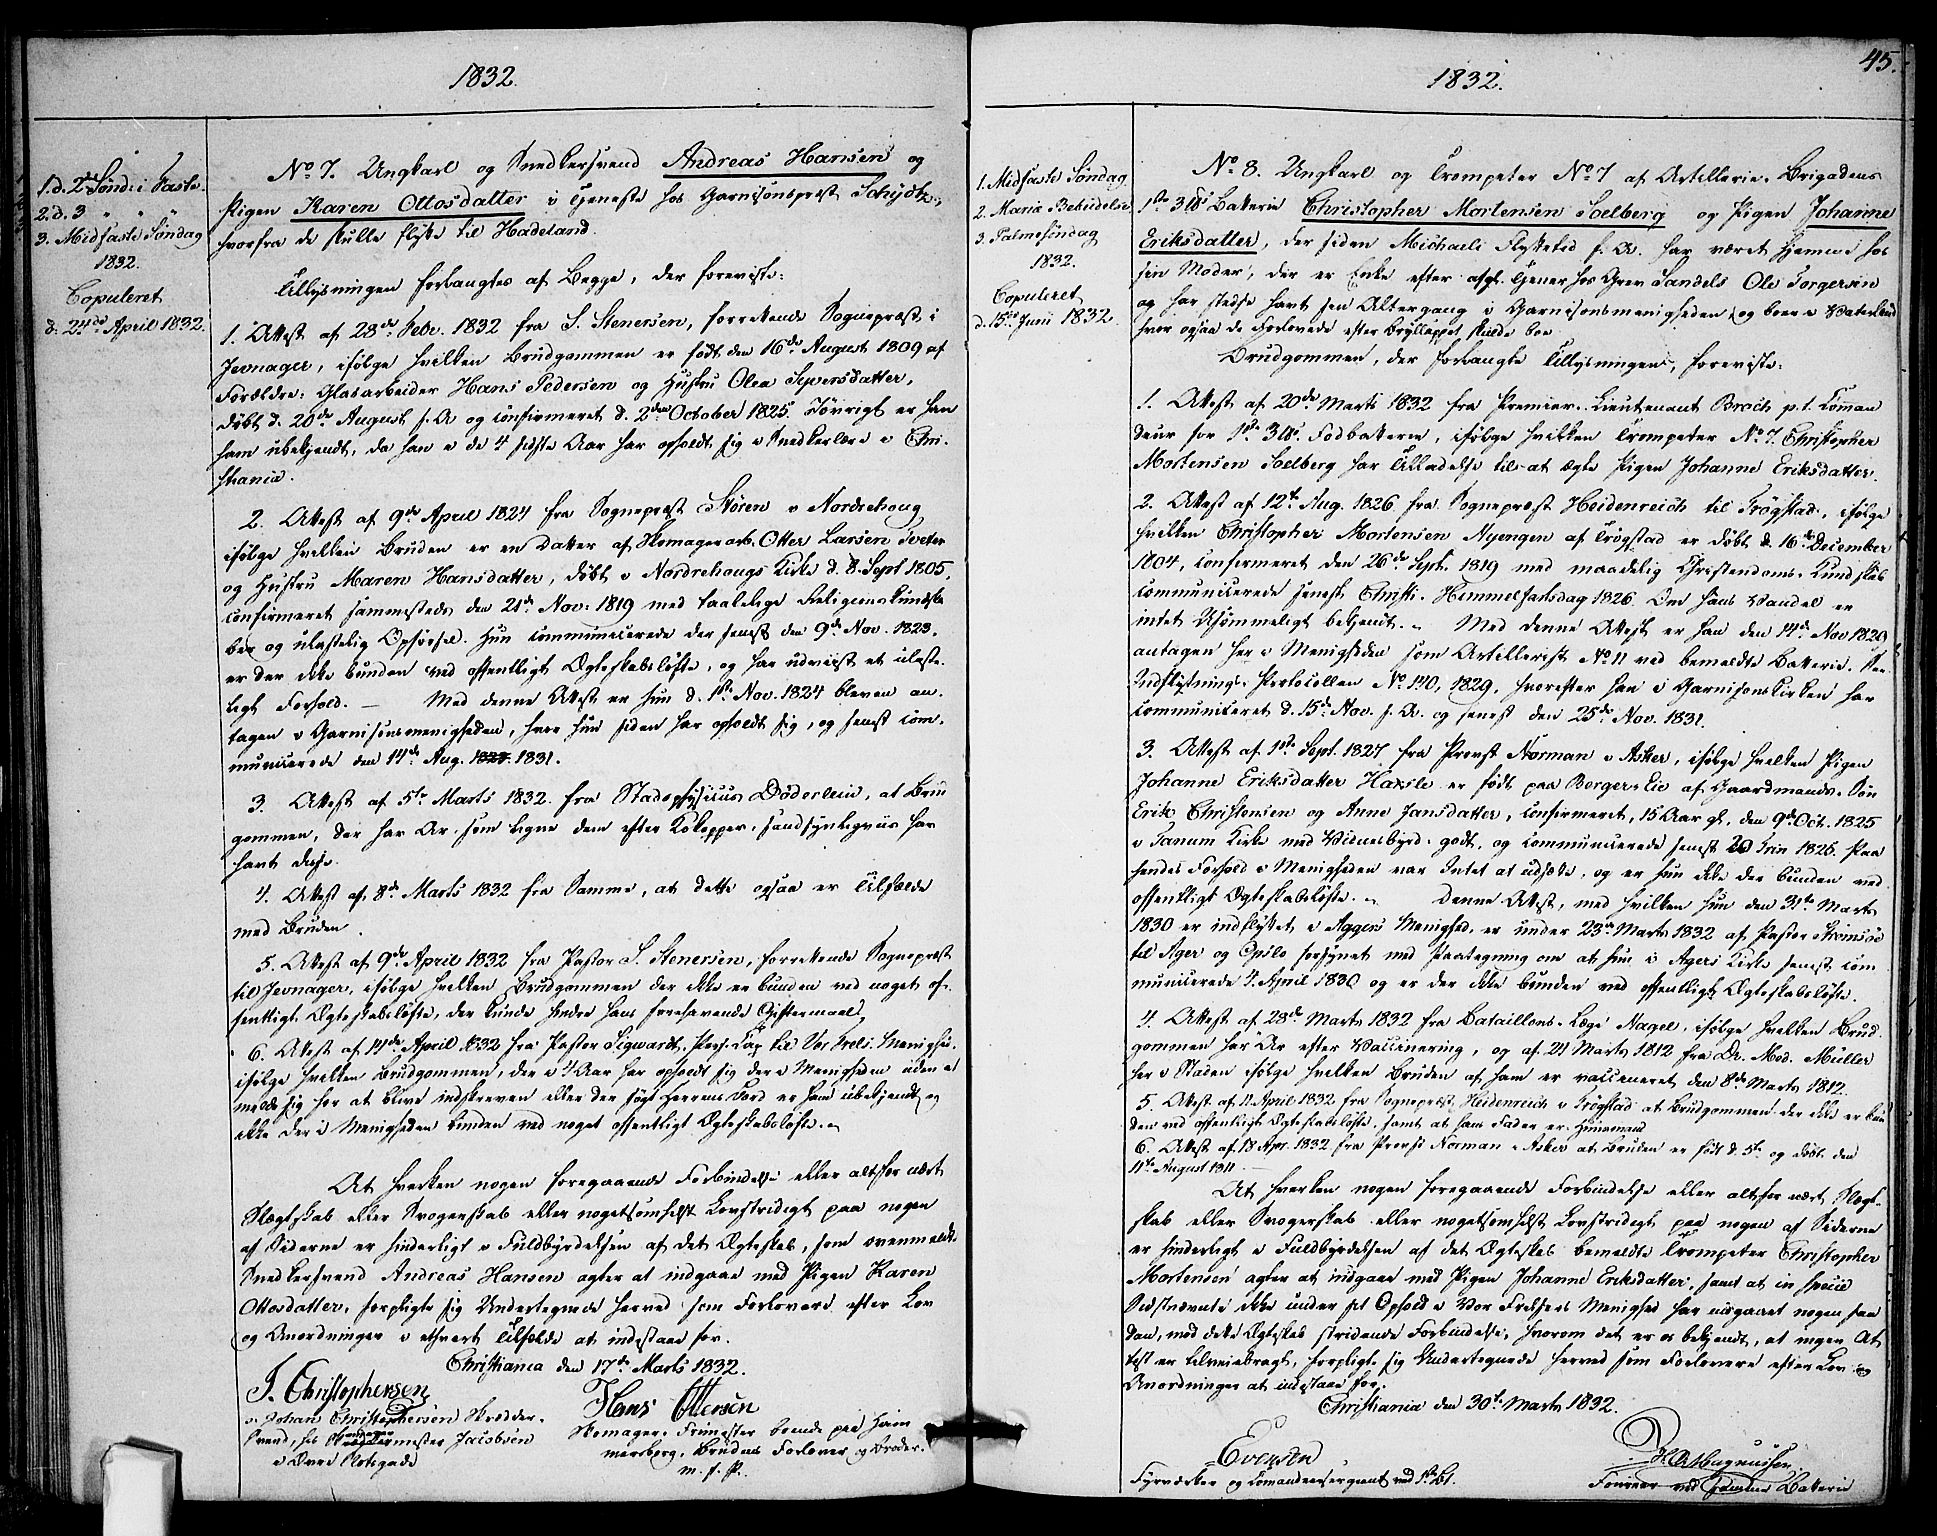 1832.
1. d. 2den Sönd. i Faste.
2. d. 3 " " "
3. Midfaste Söndag
1832.
Copuleret
d. 24de April 1832.
No 7. Ungkarl og Snedkersvend Andreas Hansen og
Pigen Karen Ottosdatter i Tjeneste hos Garnisonspræst Schydtz,
hvorfra de skulle flytte til Hadeland.
Tillysningen forlangtes af Begge, der foreviste:
1. Attest af 28de Febr. 1832 fra S. Stenersen, forrettende Sognepræst i
Jevnager, ifølge hvilken Brudgommen er født den 16de August 1809 af
Forældre: Glasarbeider Hans Pedersen og Hustru Olea Sypersdatter,
døbt d. 20de August s. A. og confirmeret d. 2den October 1825. Iövrigt er han
ham ubekjendt, da han i de 4 sidste Aar har opholdt sig i Snedkerlære i Chri-
stiania.
2. Attest af 9de April 1824 fra Sognepræst Stören i Nordrehoug
ifølge hvilken Bruden er en Datter af Skomagerarb. Otter Larsen Tveter
og Hustru Maren Hansdatter, døbt i Nordrehougs Kirke d. 8. Sept 1805,
confirmeret sammesteds den 21de Nov. 1819 med taalelige Religionskundska-
ber og ulastelig Opførsel. Hun communicerede der senest den 9de Nov. 1823,
er der ikke bunden ved offentligt Ægteskabsløfte, og har udviist et ulaste-
ligt Forhold. — Med denne Attest er hun d. 1ste Nov. 1824 bleven an-
tagen i Garnisonsmenigheden, hvor hun siden har opholdt sig, og senest com-
municerede den 14de Aug. 1831.
3. Attest af 5te Marts 1832 fra Stadsphysicus Döderlein, at Brud
gommen, der har Ar, som ligne dem efter Kokopper, sandsynligviis har
havt disse.
4. Attest af 8de Marts 1832 fra Samme, at dette ogsaa er Tilfælde
med Bruden.
5. Attest af 9de April 1832 fra Pastor S. Stenersen, forrettende Sognepræst
til Jevnager, ifølge hvilken Brudgommen der ikke er bunden ved noget of-
fentligt Ægteskabsløfte, der kunde hindre hans forehavende Giftermaal.
6. Attest af 14de April 1832 fra Pastor Sigwardt, Pers. Cap. til Vor Frels. Menighed,
ifølge hvilken Brudgommen, der i 4 Aar har opholdt sig der i Menigheden uden at
melde sig for at blive indskreven eller der søgt Herrens Bord er ham ubekjendt og
ikke der i Menigheden bunden ved noget offentligt Ægteskabsløfte.
At hverken nogen foregaaende Forbindelse eller altfor nært
Slægtskab eller Svogerskab eller nogetsomhelst Lovstridigt paa nogen
af Siderne er hinderligt i Fuldbyrdelsen af det Ægteskab, som ovenmeldte
Snedkersvend Andreas Hansen agter at indgaae med Pigen Karen
Ottosdatter, forpligte sig Undertegnede herved som Forlovere efter Lov
og Anordninger i ethvert Tilfælde at indestaae for.
Christiania den 17de Marts 1832.
J. Christophersen
Johan Christophersen Skrædder-
svend, hos Skræddermester Jacobsen
i Øvre Slotsgade
Hans Ottersen
Skomager-Frimester boende paa Ham
mersborg, Brudens Forlover og Broder.
m. f. P.
45.
1832.
1. Midfaste Söndag
2. Maria Bebudelse
3. Palmesöndag
1832.
Copuleret
d. 15de Junii 1832.
No 8. Ungkarl og Trompeter No 7 af Artillerie-Brigadens
1ste 3 ℔s Batterie Christopher Mortensen Soelberg og Pigen Johanne
Eriksdatter, der siden Michaeli Flyttetid f. A. har været hjemme hos
sin Moder, der er Enke efter afgl. Tjener hos Grev Sandels Ole Torgersen
og har stedse havt sin Altergang i Garnisonsmenigheden og boer i Vaterland
hvor ogsaa de Forlovede efter Brylluppet skulde boe.
Brudgommen, der forlangte Tillysningen, foreviste:
1. Attest af 20de Marts 1832 fra Premier-Lieutenant Broch p. t. Comman
deur for 1ste 3 ℔s Fodbatterie, ifølge hvilken Trompeter No 7. Christopher
Mortensen Soelberg har Tilladelse til at ægte Pigen Johanne Eriksdatter.
2. Attest af 12te Aug. 1826 fra Sognepræst Heidenreich til Trögstad, ifølge
hvilken Christopher Mortensen Nyengen af Trögstad er døbt d. 16de December
1804, confirmeret den 26de Sept. 1819 med maadelig Christendoms-Kundskab
communicerede senest Christi Himmelfartsdag 1826. Om hans Vandel er
intet Usømmeligt bekjendt. — Med denne Attest er han den 14de Nov 1829
antagen her i Menigheden som Artillerist No 11 ved bemeldte Batterie. See
Indflytnings-Protocollen No 140, 1829, hvorefter han i Garnisonskirken har
communiceret d. 15de Nov. s. A. og senest den 25de Nov. 1831.
3. Attest af 1ste Sept. 1827 fra Provst Norman i Asker, ifølge hvilken Pigen
Johanne Eriksdatter Haxsle er født paa Berger-Eie af Gaardmands-Søn
Erik Christensen og Anne Jansdatter, confirmeret, 15 Aar gl., den 9de Oct. 1825
i Tanum Kirke med Vidnesbyrd: godt, og communicerede senest Trin 1826. Paa
hendes Forhold i Menigheden var Intet at udsætte, og er hun ikke der bunden ved
offentligt Ægteskabsløfte. — Denne Attest, med hvilken hun den 31te Marts
1830 er indflyttet i Aggers Menighed, er under 23de Marts 1832 af Pastor Strömsöe
til Ager og Opslo forsynet med Paategning om at hun i Agers Kirke senest com
municerede 4 April 1830 og er der ikke bunden ved offentligt Ægteskabsløfte.
4. Attest af 28de Marts 1832 fra Bataillons-Læge Nagel, ifølge hvilken Brud
gommen har Ar efter Vaccinering, og af 21 Marts 1812 fra Dr. Med. Müller
her i Staden ifølge hvilken Bruden af ham er vaccineret den 8de Marts 1812.
5. Attest af 11 April 1832 fra Sognepræst Heidenreich i Trögstad at Brudgommen der ikke er bun
den ved offentligt Ægteskabsløfte, samt at hans Fader er Huusmand
6. Attest af 18 Apr. 1832 fra Provst Norman i Asker at Bruden er født d. 5te og døbt den
11te August 1811
At hverken nogen foregaaende Forbindelse eller altfor nært Slægt-
skab eller Svogerskab eller nogetsomhelst Lovstridigt paa nogen af Siderne
er hinderligt i Fuldbyrdelsen af det Ægteskab bemeldte Trompeter Christopher
Mortensen agter at indgaae med Pigen Johanne Eriksdatter, samt at in specie
Sidstnævnte ikke under sit Ophold i Vor Frelsers Menighed har indgaaet nogen saa
dan, med dette Ægteskab stridende Forbindelse, hvorom det er os bekjendt, at ingen At
test er tilveiebragt, forpligte sig Undertegnede herved som Forlovere efter Lov og
Anordninger at indestaae for.
Christiania den 30te Marts 1832.
Evensen
Fyrværker og Commandeersergeant ved 1ste Bt.
H. Magnussen
Foureer ved samme Batterie